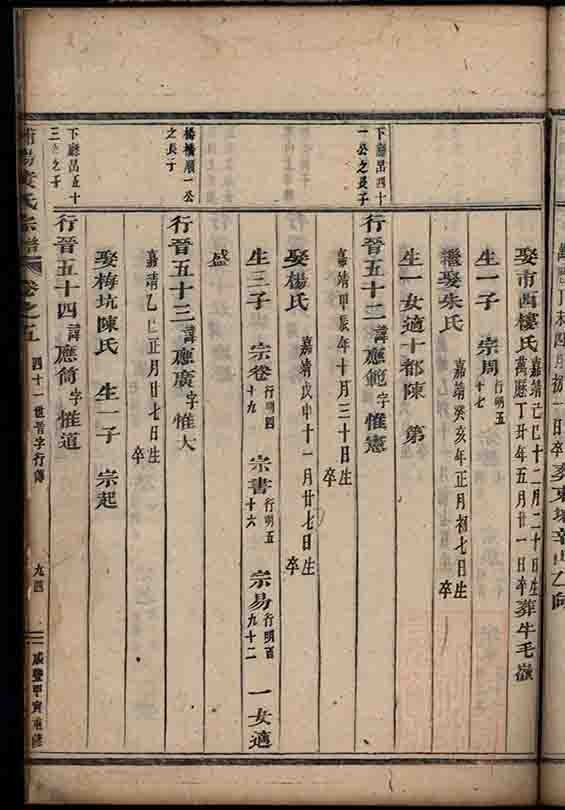 娶市西樓氏 嘉靖己巳十二月二十日生
萬歷丁丑年五月廿一日卒 葬牛毛嶺
生一子 宗周 行明五十七
繼娶朱氏 嘉靖癸亥年正月初七日生 卒
生一女適十都陳 第
下廳岊四十一公之長子
行晉五十二 諱應範 字惟憲
嘉靖甲辰年十月三十日生 卒
娶楊氏 嘉靖戊申十一月廿七日生 卒
生三子 宗卷 行明四十九 宗書 行明五十六 宗易 行明百九十二 一女適
盛
橋橫順一公之長子
行晉五十三 諱應廣 字惟大
嘉靖乙巳正月廿七日生 卒
娶梅坑陳氏 生一子 宗起
下廳岊五十三公之子
行晉五十四 諱應筒 字惟道
氏宗譜 卷之五 四十一世晉字行傳 九四 咸豐甲寅重修